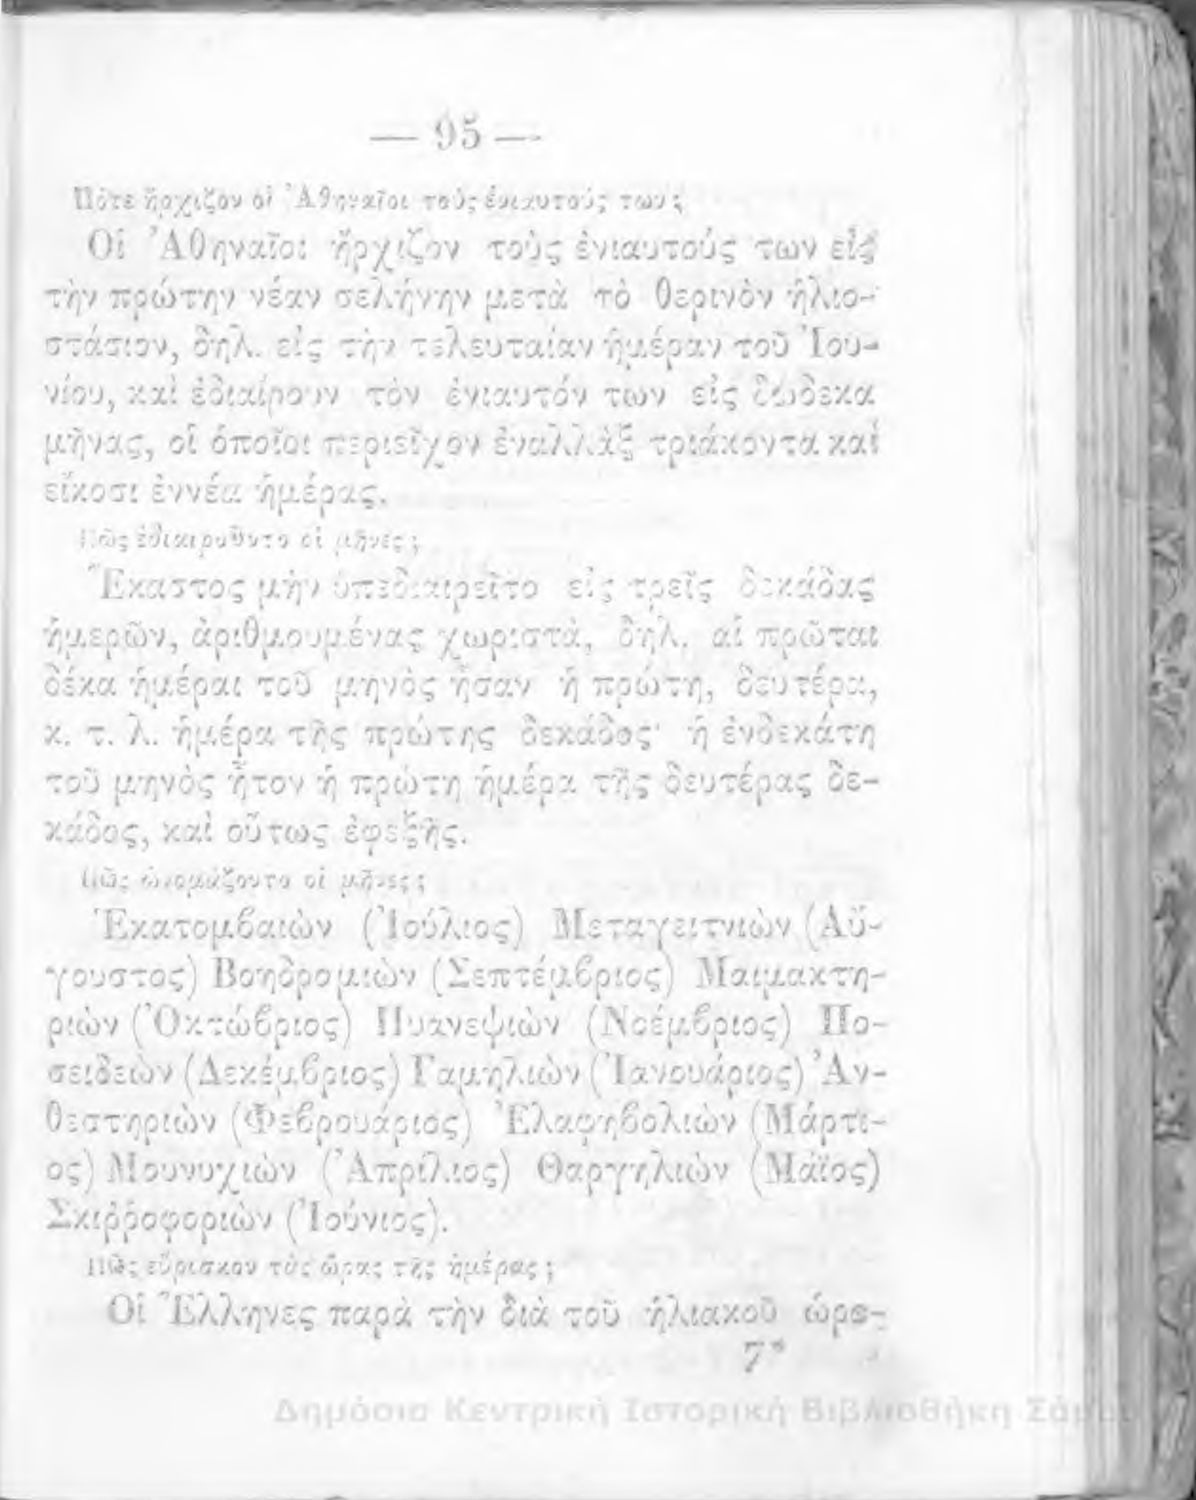 — 95 —
Πότε ἤρχιζον οἱ Ἀθηναῖοι τοὺς ἐνιαυτούς των;
Οἱ Ἀθηναῖοι ἤρχιζον τοὺς ἐνιαυτούς των εἰς
τὴν πρώτην νέαν σελήνην μετὰ τὸ θερινὸν ἡλιο-
στάσιον, δηλ. εἰς τὴν τελευταίαν ἡμέραν τοῦ Ἰου-
νίου, καὶ ἐδιαίρουν τὸν ἐνιαυτόν των εἰς δώδεκα
μῆνας, οἱ ὁποῖοι περιεῖχον ἐναλλὰξ τριάκοντα καὶ
εἴκοσι ἐννέα ἡμέρας.
Πῶς ἐδιαιροῦντο οἱ μῆνες;
Ἕκαστος μὴν ὑπεδιαιρεῖτο εἰς τρεῖς δεκάδας
ἡμερῶν, ἀριθμουμένας χωριστὰ, δηλ. αἱ πρῶται
δέκα ἡμέραι τοῦ μηνὸς ἦσαν ἡ πρώτη, δευτέρα,
κ. τ. λ. ἡμέρα τῆς πρώτης δεκάδος· ἡ ἑνδεκάτη
τοῦ μηνὸς ἦτον ἡ πρώτη ἡμέρα τῆς δευτέρας δε-
κάδος, καὶ οὕτως ἐφεξῆς.
Πῶς ὠνομάζοντο οἱ μῆνες;
Ἑκατομβαιὼν (Ἰούλιος) Μεταγειτνιὼν (Αὔ-
γουστος) Βοηδρομιὼν (Σεπτέμβριος) Μαιμακτη-
ριὼν (Ὀκτώβριος) Πυανεψιὼν (Νοέμβριος) Πο-
σειδεὼν (Δεκέμβριος) Γαμηλιὼν (Ἰανουάριος) Ἀν-
θεστηριὼν (Φεβρουάριος) Ἐλαφηβολιὼν (Μάρτι-
ος) Μουνυχιὼν (Ἀπρίλιος) Θαργηλιὼν (Μάϊος)
Σκιῤῥοφοριὼν (Ἰούνιος).
Πῶς εὕρισκον τὰς ὥρας τῆς ἡμέρας;
Οἱ Ἕλληνες παρὰ τὴν διὰ τοῦ ἡλιακοῦ ὡρο-
7*
Δημόσια Κεντρική Ιστορική Βιβλιοθήκη Σάμου